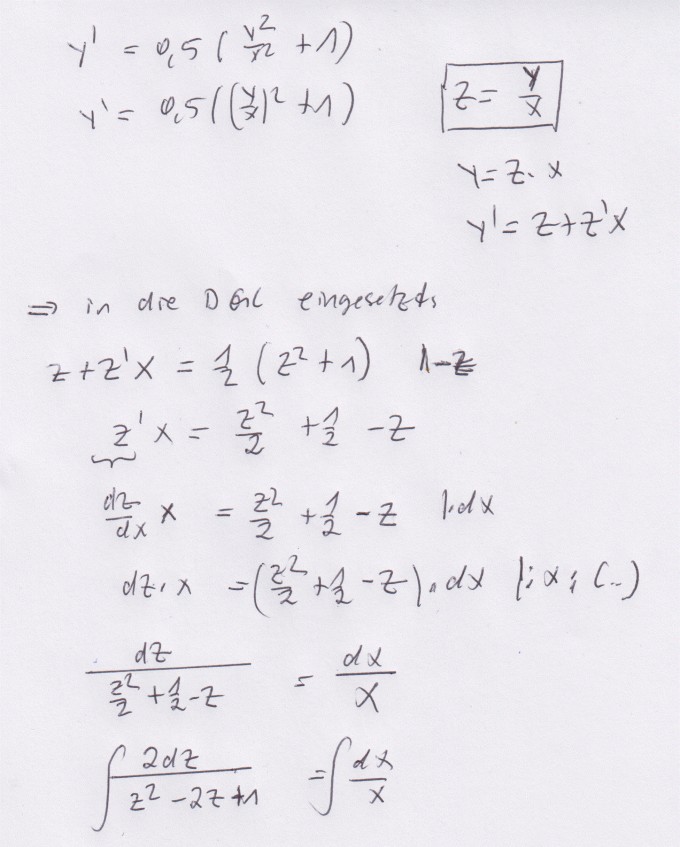 y' = 0,5 ( y²/x² + 1)
y' = 0,5 ((y/x)² + 1)
z = y/x
y = z · x
y' = z + z'x
⇒ in die DGL eingesetzt:
z + z'x = 1/2 (z² + 1) | -z
z'x = z²/2 + 1/2 - z
dz/dx x = z²/2 + 1/2 - z |·dx
dz · x = (z²/2 + 1/2 - z) · dx |: x ; (...)
dz / (z²/2 + 1/2 - z) = dx/x
∫ 2dz / (z² - 2z + 1) = ∫ dx/x